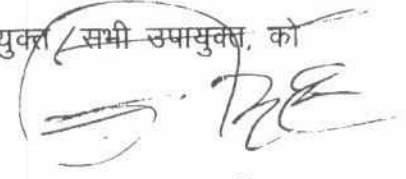 युक्त / सभी उपायुक्त, को